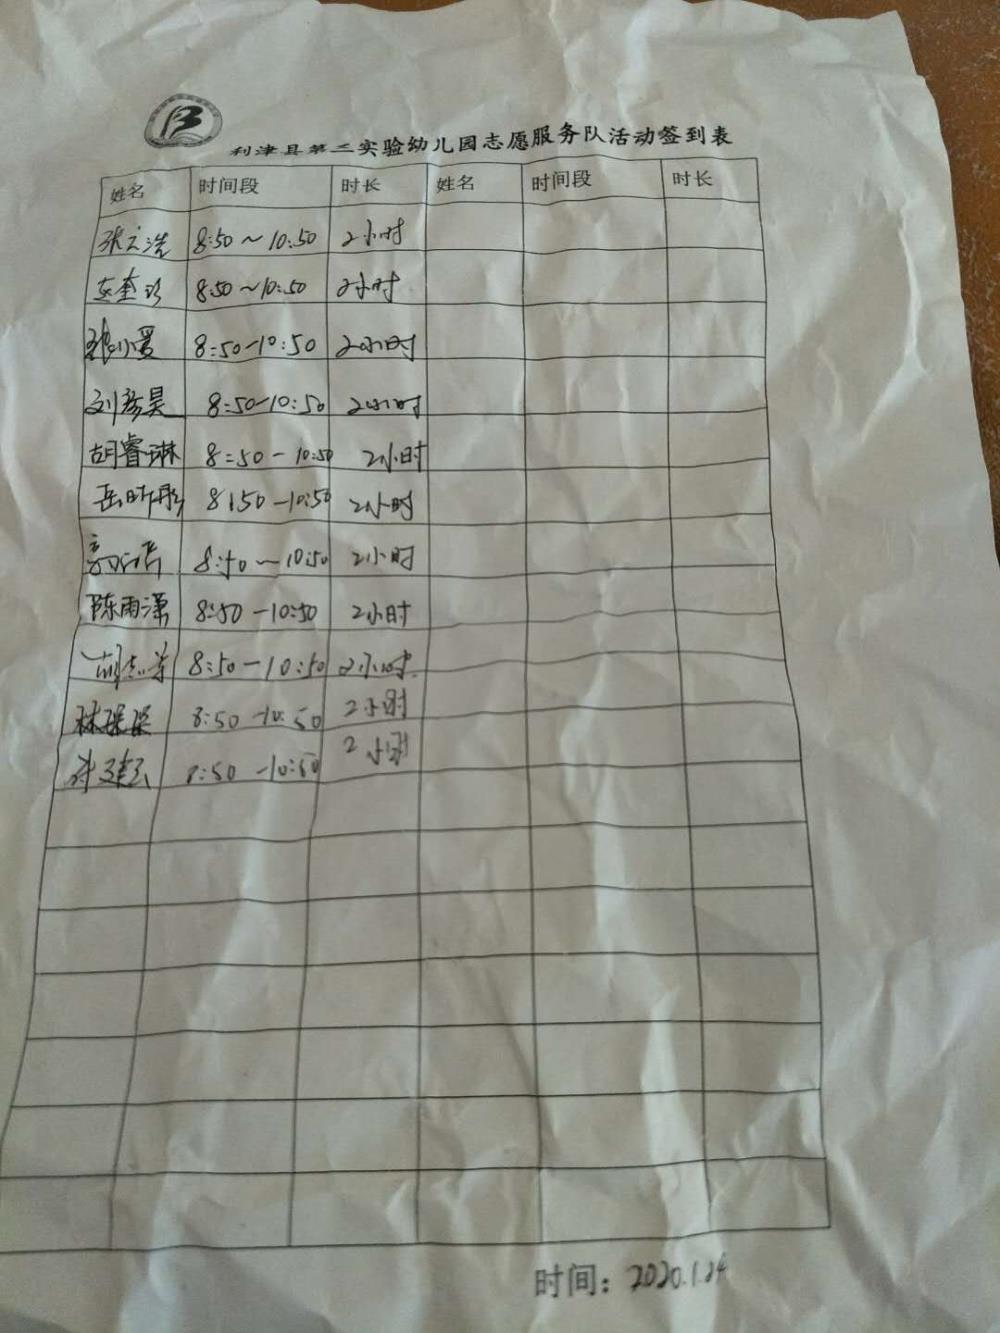 利津县第二实验幼儿园志愿服务队活动签到表
姓名 时间段 时长 姓名 时间段 时长
8:50～10:50 2小时
8:50～10:50 2小时
8:50-10:50 2小时
刘彦昊 8:50-10:50 2小时
胡睿琳 8:50-10:50 2小时
8:50-10:50 2小时
8:50～10:50 2小时
陈雨潇 8:50-10:50 2小时
8:50-10:50 2小时
林琛琛 8:50-10:50 2小时
8:50-10:50 2小时
时间：2020.1.24